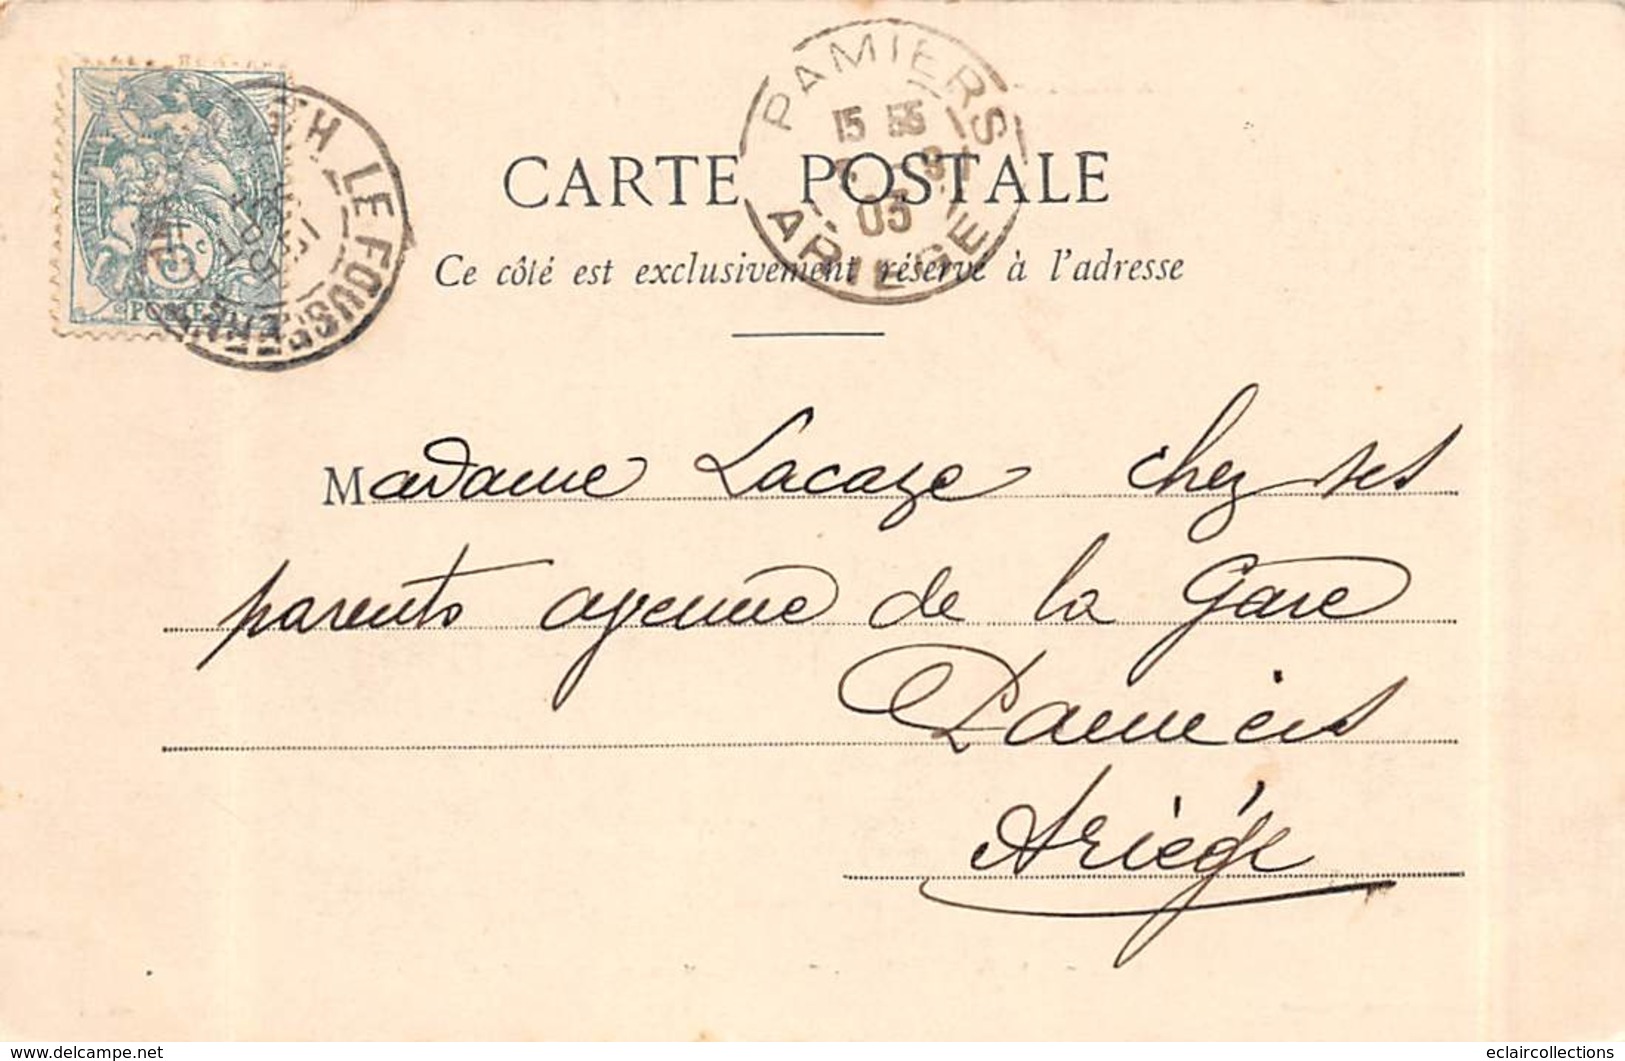 PAMIERS
15 55
03
ARIEGE
LE FOUSSERET
Hte
POSTES
CARTE POSTALE
Ce côté est exclusivement réservé à l'adresse
Madame Lacaze chez ses
parents avenue de la Gare
Pamiers
Ariége
www.delcampe.net
eclaircollections